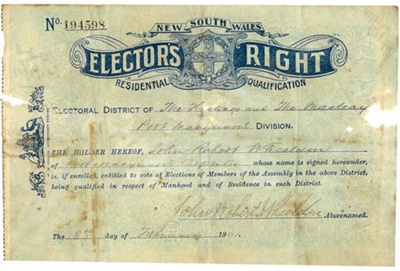 No. 194598
NEW SOUTH WALES
ELECTOR'S RIGHT
RESIDENTIAL QUALIFICATION
ELECTORAL DISTRICT OF The Hastings and The Macleay
Port Macquarie DIVISION.
THE HOLDER HEREOF, John Robert
of Port Macquarie whose name is signed hereunder,
is, if enrolled, entitled to vote at Elections of Members of the Assembly in the above District,
being qualified in respect of Manhood and of Residence in such District.
John Robert
Abovenamed.
The day of February 190